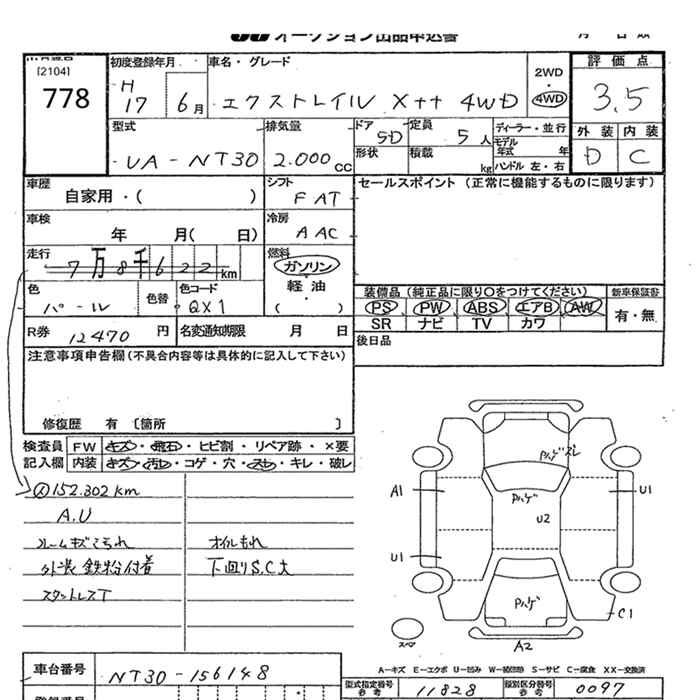 オークション出品申込書
[2104]
778
初度登録年月
H 17 6月
車名・グレード
エクストレイル X++ 4WD
2WD
・
4WD
評価点
3.5
外装 内装
D C
型式
UA-NT30
排気量
2.000 CC
ドア 5D
定員 5人
形状
積載 kg
ディーラー・並行
モデル年式 年
ハンドル 左・右
車歴
自家用・( )
シフト
F AT
セールスポイント (正常に機能するものに限ります)
車検
年 月( 日)
冷房
A AC
走行
7万8千622km
燃料
ガソリン
軽油
( )
色
パール
色替
色コード
QX1
装備品(純正品に限り○をつけてください)
PS PW ABS エアB AW
SR ナビ TV カワ
新車保証書
有・無
R券
12470円
名変通知期限 月 日
後日品
注意事項申告欄(不具合内容等は具体的に記入して下さい)
修復歴 有 〔箇所 〕
検査員 FW キズ・飛石・ヒビ割・リペア跡・×要
記入欄 内装 キズ・汚レ・コゲ・穴・スレ・キレ・破レ
152.302km
A.U
ルームキズこすれ
オイルもれ
外装 鉄粉付着
下回りS,C大
スタットレスT
Pハゲズレ
A1
Pハゲ
U2
U1
U1
Pハゲ
C1
スペア
A2
A-キズ E-エクボ U-凹み W-補修跡 S-サビ C-腐食 XX-交換済
車台番号
NT30-156148
型式指定番号
参考
11828
類別区分番号
参考
0097